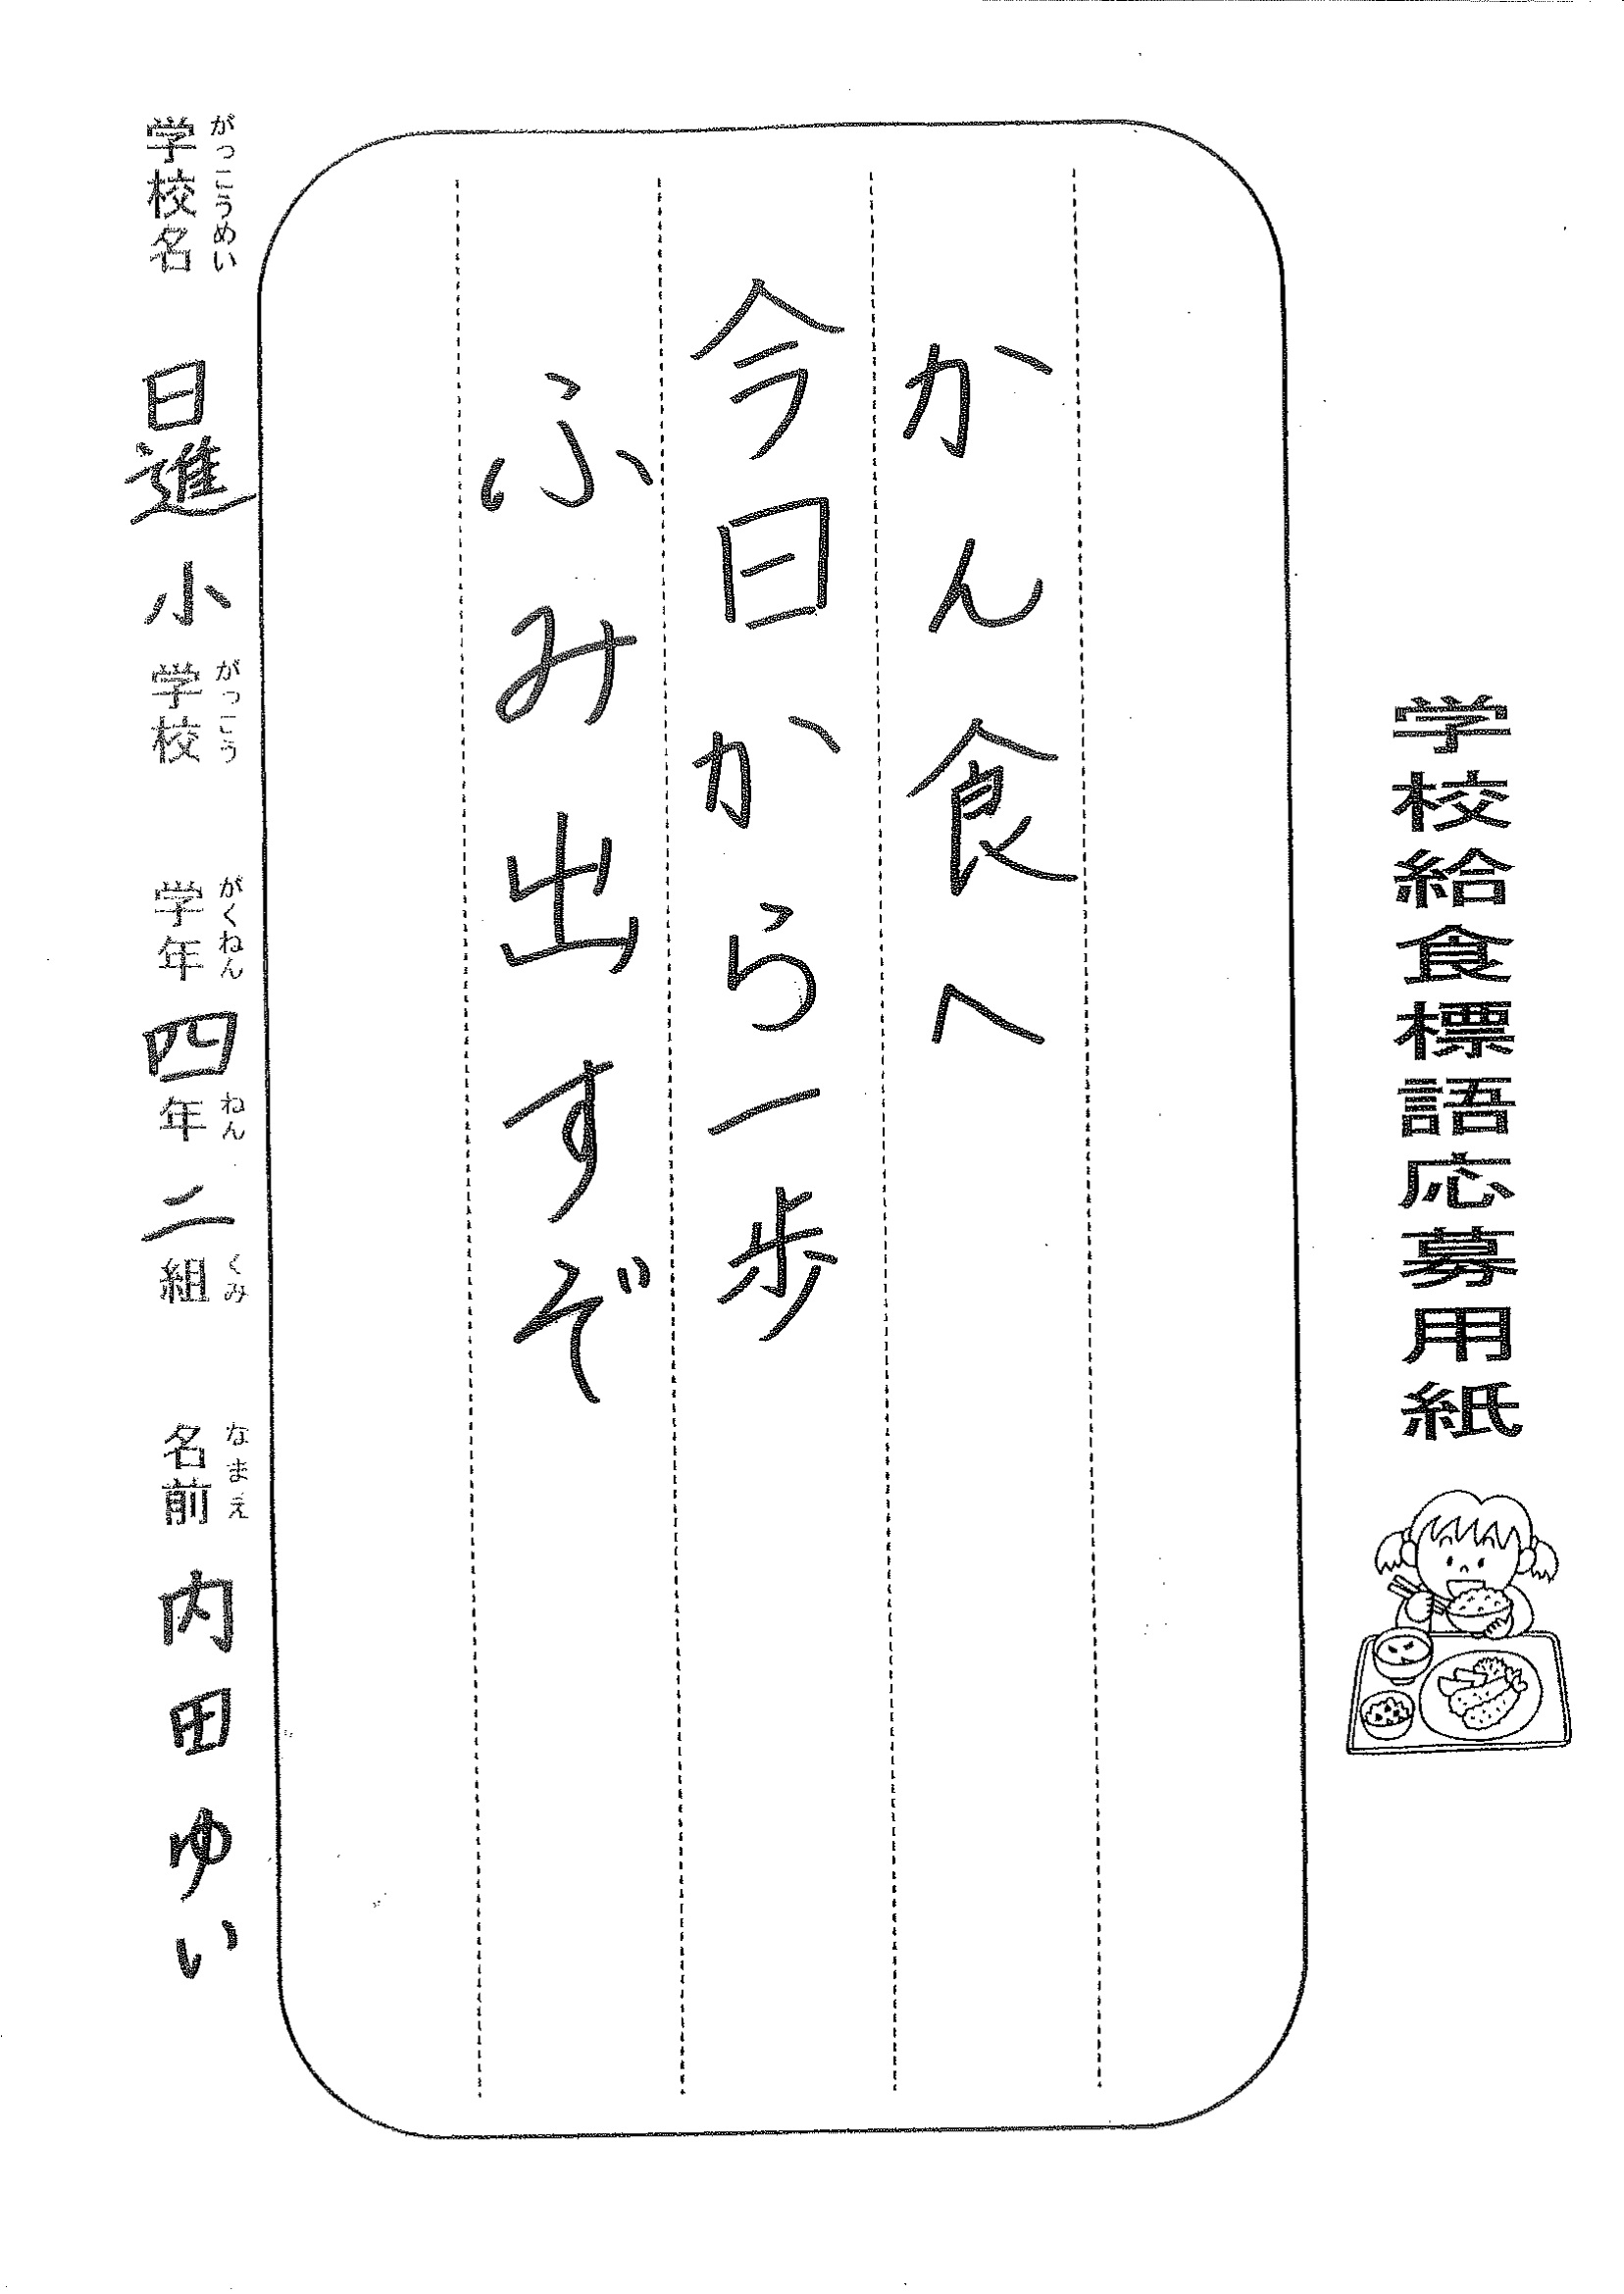 学校給食標語応募用紙
かん食へ
今日から一歩
ふみ出すぞ
がっこうめい　がっこう　がくねん　ねん　くみ　なまえ
学校名 日進小学校 学年 四年 二組 名前 内田ゆい